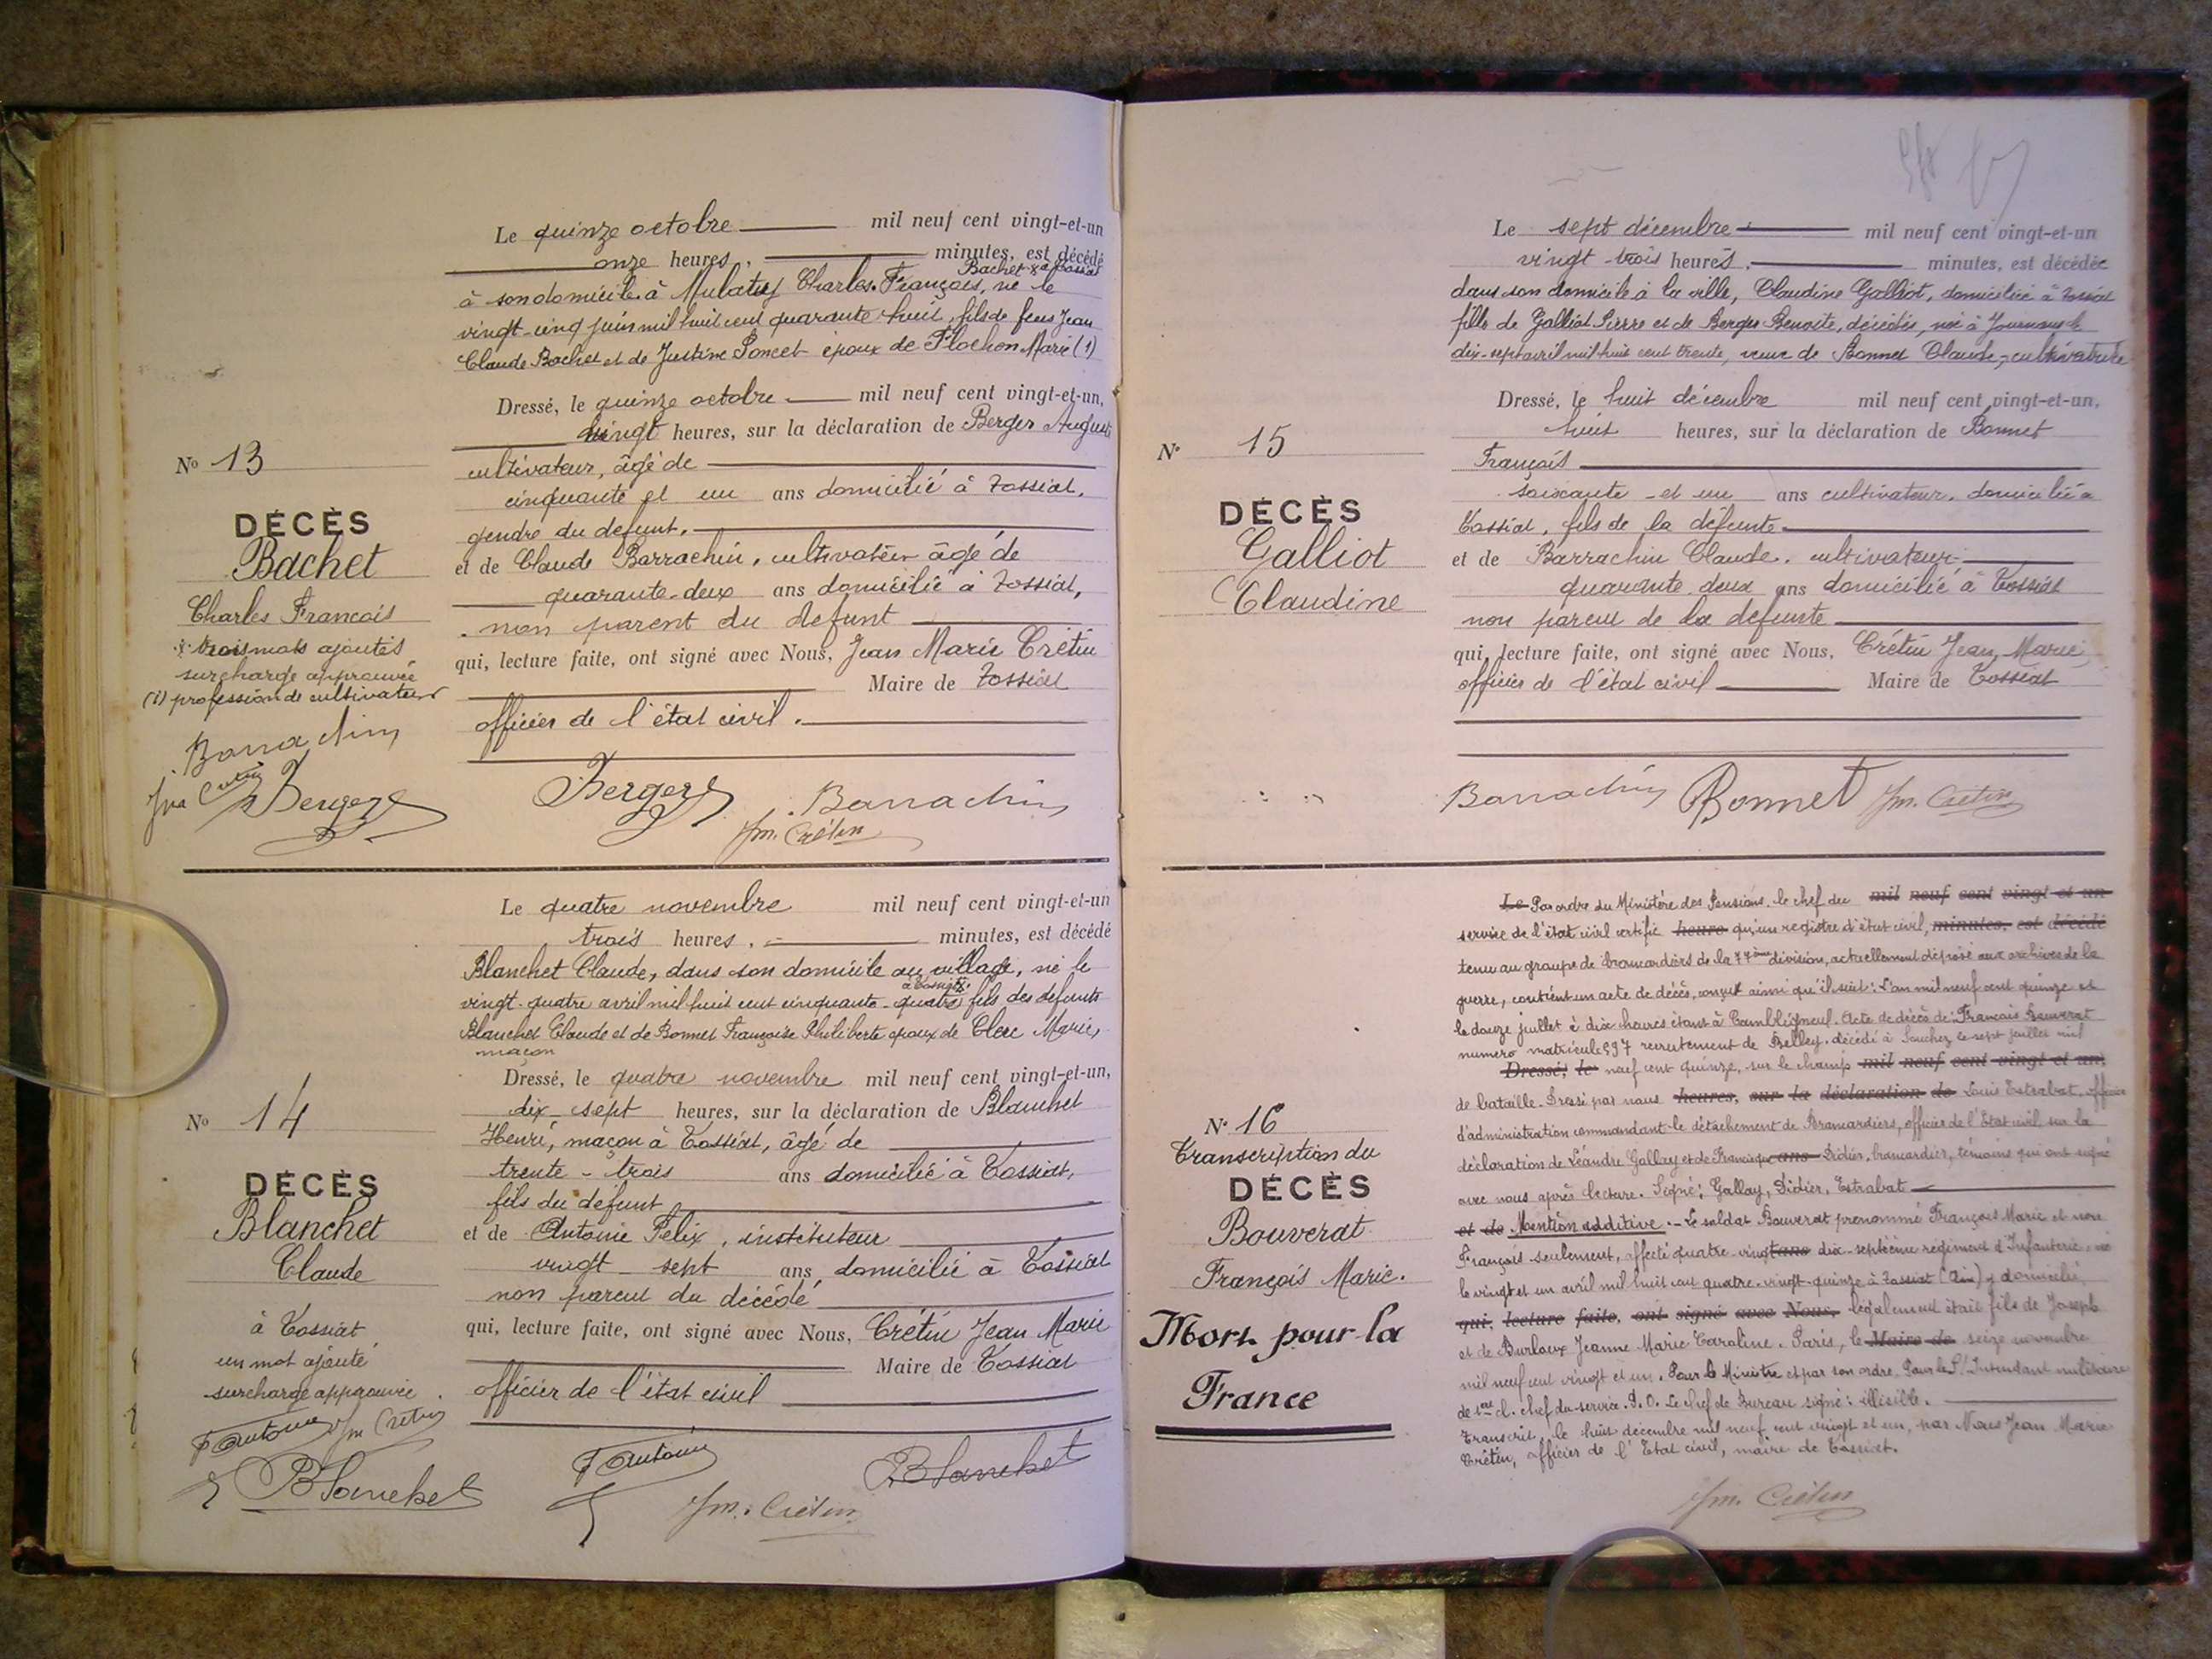 Le quinze octobre mil neuf cent vingt-et-un
onze heures, minutes, est décédé
Bachet
à son domicile à Mulatey Charles François, né le
vingt-cinq juin mil huit cent quarante-huit, fils de feus Jean
Claude Bachet et de Justine Poncet époux de Plochon Marie (1)
Dressé, le quinze octobre mil neuf cent vingt-et-un,
vingt heures, sur la déclaration de Berger Auguste
cultivateur, âgé de
cinquante et un ans domicilié à Tossiat,
gendre du defunt.
et de Claude Barrachin, cultivateur âgé de
quarante-deux ans domicilié à Tossiat,
non parent du defunt
qui, lecture faite, ont signé avec Nous, Jean Marie Crétin
Maire de Tossiat
officier de l'état civil.
No 13
DÉCÈS
Bachet
Charles François
trois mots ajoutés
surcharge approuvée
(1) profession de cultivateur
Barrachin
Jm Cretin
Berger
Berger
Barrachin
Jm. Crétin
Le quatre novembre mil neuf cent vingt-et-un
trois heures, minutes, est décédé
Blanchet Claude, dans son domicile au village, né le
à Tossiat
vingt-quatre avril mil huit cent cinquante-quatre fils des défunts
Blanchet Claude et de Bonnet Françoise Philiberte époux de Clerc Marie,
maçon
Dressé, le quatre novembre mil neuf cent vingt-et-un,
dix-sept heures, sur la déclaration de Blanchet
Henri, maçon à Tossiat, âgé de
trente-trois ans domicilié à Tossiat,
fils du défunt
et de Antoine Félix, instituteur
vingt-sept ans domicilié à Tossiat
non parent du décédé
qui, lecture faite, ont signé avec Nous, Crétin Jean Marie
Maire de Tossiat
officier de l'état civil
No 14
DÉCÈS
Blanchet
Claude
à Tossiat
un mot ajouté
surcharge approuvée.
F Antoine Jm Crétin
Blanchet
F Antoine
Jm. Crétin
Blanchet
Le sept décembre mil neuf cent vingt-et-un
vingt-trois heures, minutes, est décédée
dans son domicile à la ville, Claudine Galliot, domiciliée à Tossiat
fille de Galliot Pierre et de Berger Benoite, décédés, née à Journans le
dix-sept avril mil huit cent trente, veuve de Bonnet Claude, cultivatrice
Dressé, le huit décembre mil neuf cent vingt-et-un,
huit heures, sur la déclaration de Bonnet
François
soixante-et un ans cultivateur, domicilié à
Tossiat, fils de la défunte
et de Barrachin Claude, cultivateur
quarante deux ans domicilié à Tossiat
non parent de la defunte
qui, lecture faite, ont signé avec Nous, Crétin Jean Marie,
officier de l'état civil Maire de Tossiat
No 15
DÉCÈS
Galliot
Claudine
Barrachin Bonnet Jm. Crétin
Le Par ordre du Ministère des Pensions, le chef du mil neuf cent vingt-et-un
service de l'état civil certifie heure qu'un registre d'état civil, minutes, est décédé
tenu au groupe de brancardiers de la 77ème division, actuellement déposé aux archives de la
guerre, contient un acte de décès, conçu ainsi qu'il suit: L'an mil neuf cent quinze et
le douze juillet à dix heures étant à Cambligneul. Acte de décès de: François Bouverat
numéro matricule 597 recrutement de Belley. décédé à Souchez le sept juillet mil
Dressé, le neuf cent quinze, sur le champ mil neuf cent vingt et un,
de bataille. Dressé par nous heures, sur la déclaration de Louis Estrabat, officier
d'administration commandant le détachement de Brancardiers, officier de l'Etat civil, sur la
déclaration de Léandre Gallay et de Francisque ans Didier, brancardier, témoins qui ont signé
avec nous après lecture. Signé: Gallay, Didier, Estrabat
et de Mention additive. - Le soldat Bouverat prénommé François Marie et non
François seulement, affecté quatre-vingt ans dix-septième régiment d'Infanterie, né
le vingt et un avril mil huit cent quatre-vingt-quinze à Tossiat (Ain) y domicilié
qui, lecture faite, ont signé avec Nous, légalement était fils de Joseph
et de Burloux Jeanne Marie Caroline. Paris, le Maire de seize novembre
mil neuf cent vingt et un. Pour le Ministre et par son ordre. Pour le S/ Intendant militaire
de 1ère cl. chef du service. P.O. Le chef de Bureau signé: illisible.
Transcrit, le huit décembre mil neuf cent vingt et un, par Nous Jean Marie
Crétin, officier de l'Etat civil, maire de Tossiat.
No 16
Transcription du
DÉCÈS
Bouverat
François Marie.
Mort pour la
France
Jm. Crétin